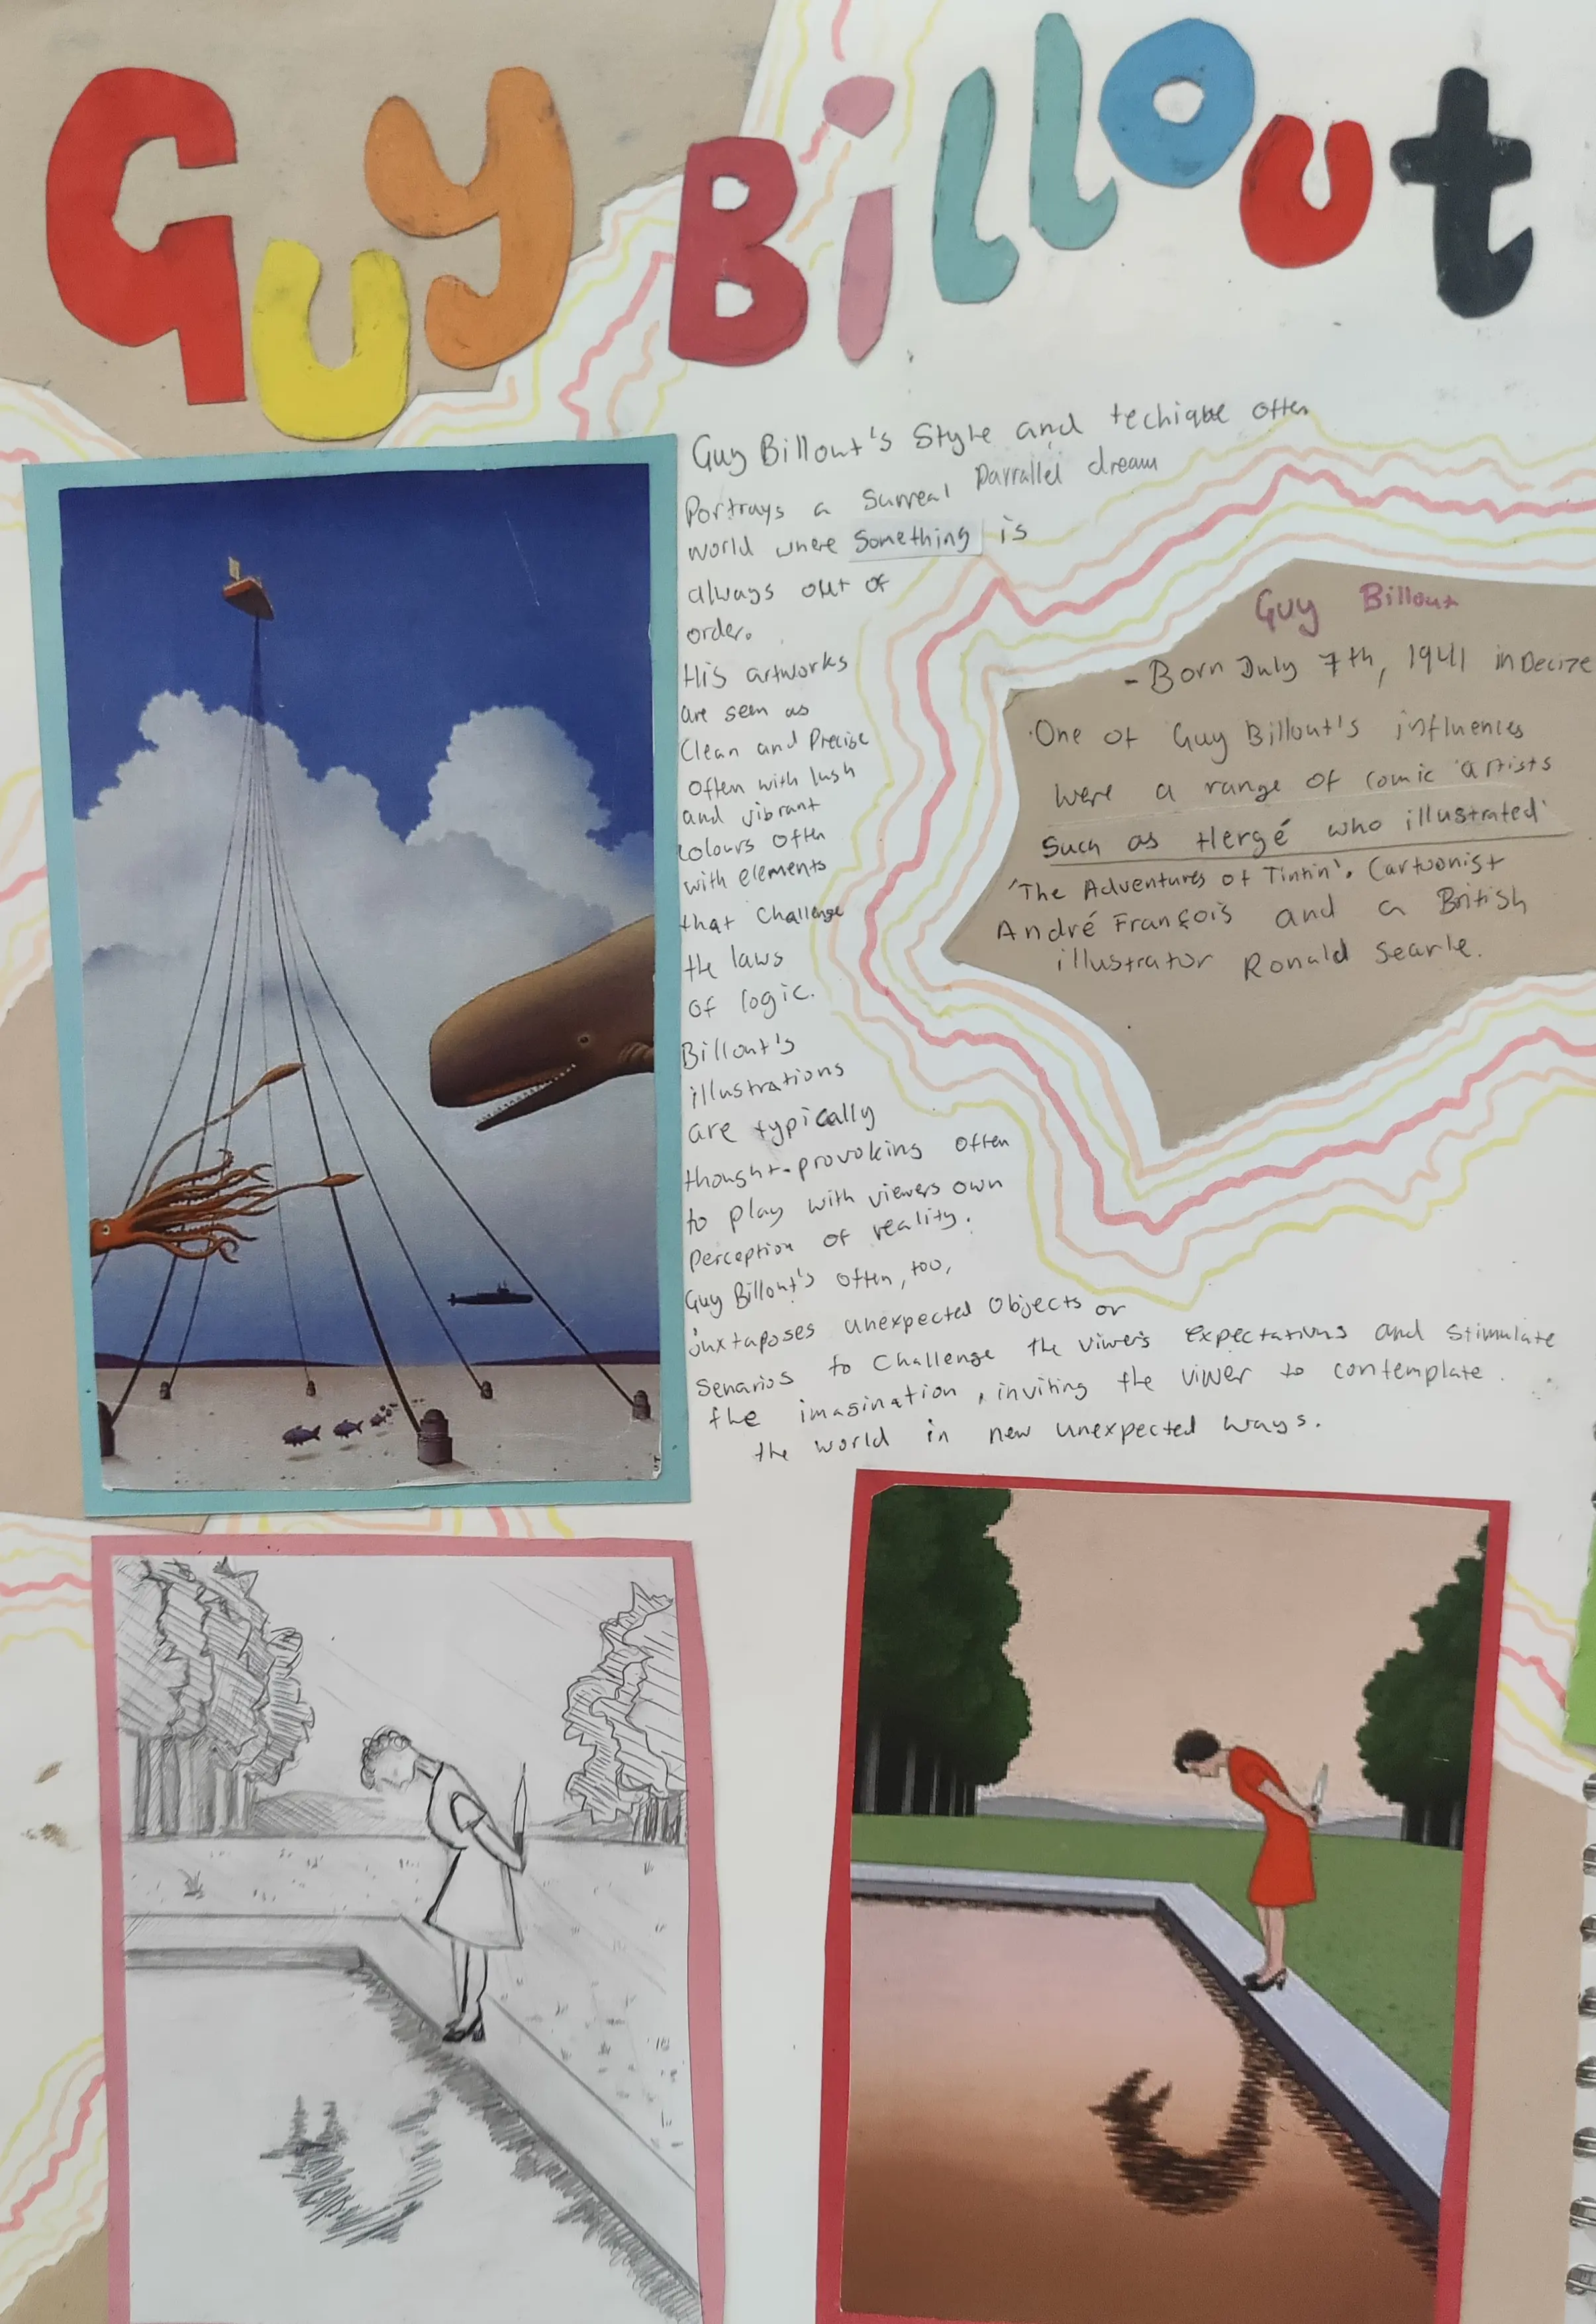 Guy Billout
Guy Billout's Style and techique often
Portrays a Surreal Parrallel dream
world where Something is
always out of
order.
His artworks
are seen as
Clean and Precise
Often with lush
and vibrant
colours Often
with elements
that Challenge
the laws
of logic.
Billout's
illustrations
are typically
thought-provoking often
to play with viewers own
Perception of reality.
Guy Billout's often, too,
juxtaposes unexpected Objects or
Senarios to Challenge the viwers expectations and stimulate
the imagination, inviting the viwer to contemplate.
the world in new unexpected ways.
Guy Billout
- Born July 7th, 1941 in Decize
·One of Guy Billout's influences
were a range of comic artists
Such as Hergé who illustrated
'The Adventures of Tintin'. Cartoonist
André François and a British
illustrator Ronald Searle.